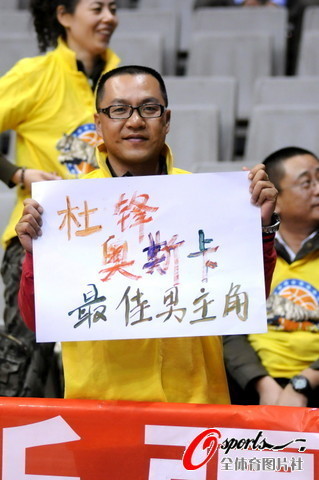 杜锋
奥斯卡
最佳男主角
sports
全体育图片社